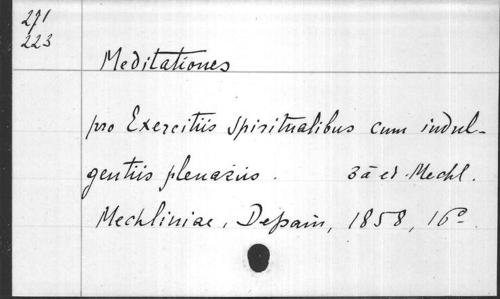 271
223
Meditationes
pro Exercitiis spiritualibus cum indul-
gentiis plenariis. 3a ed. Mechl.
Mechliniae, Dessain, 1858, 16o